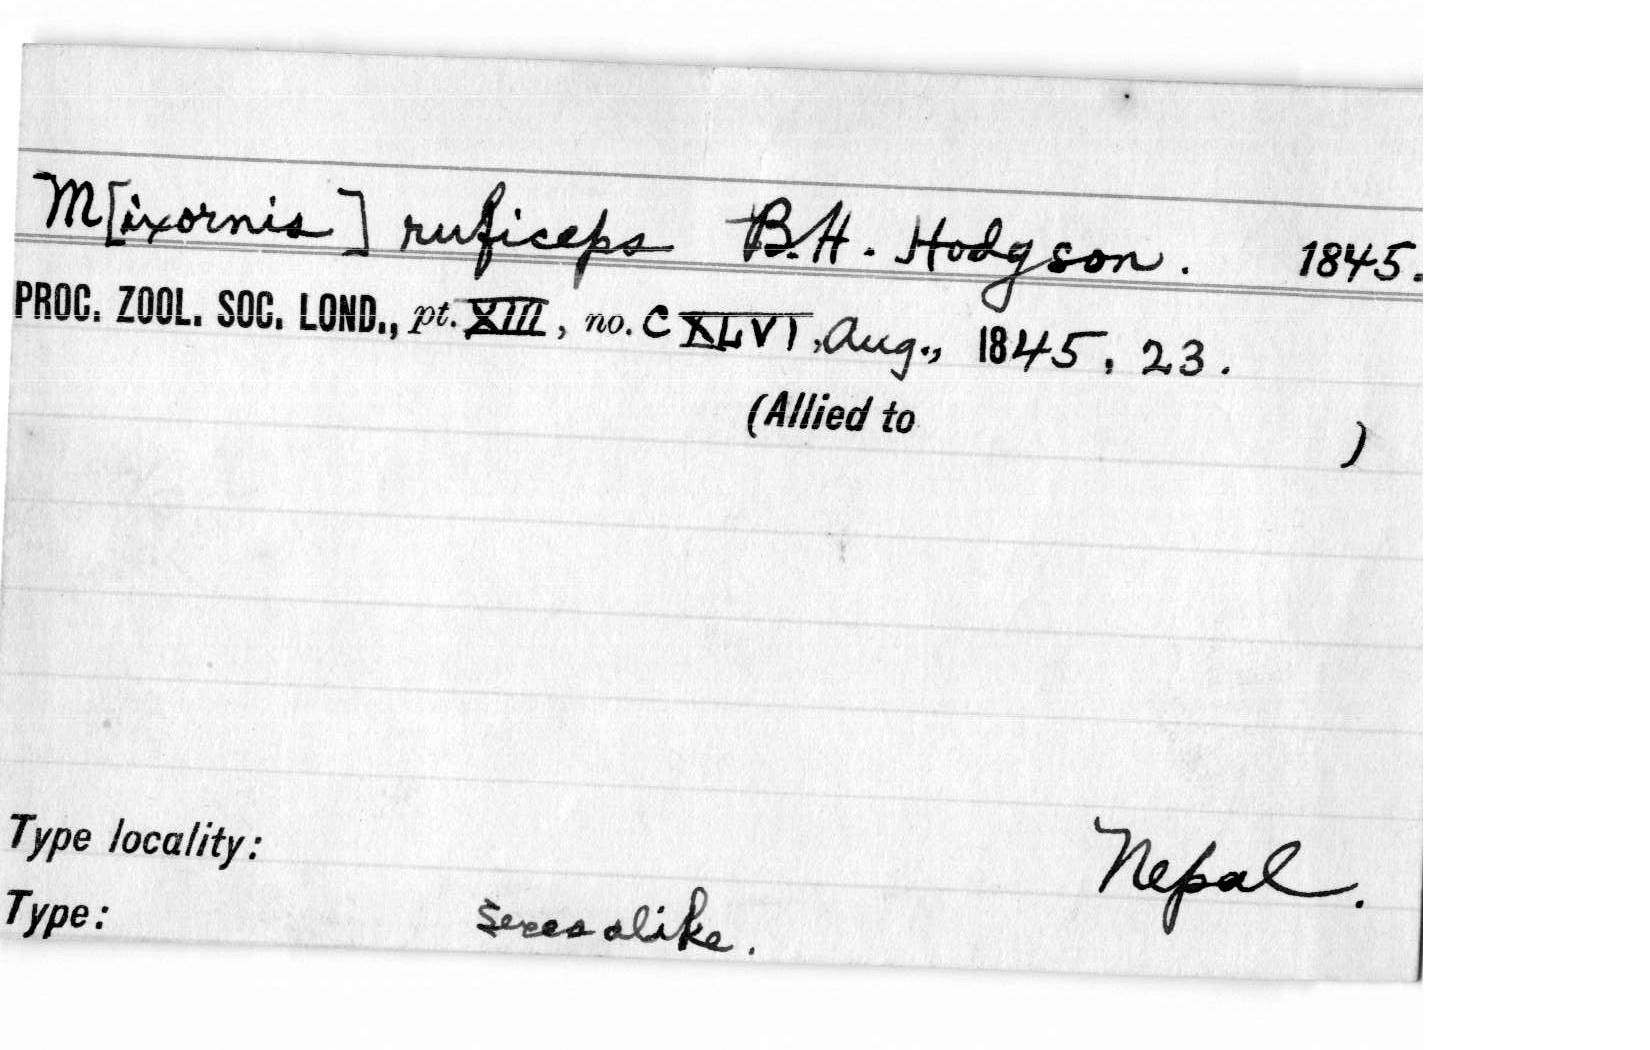 M[ixornis] ruficeps B.H. Hodgson. 1845.
PROC. ZOOL. SOC. LOND., pt. XIII, no. CXLVI, Aug., 1845, 23.
(Allied to )
Type locality: Nepal.
Type: Sexes alike.